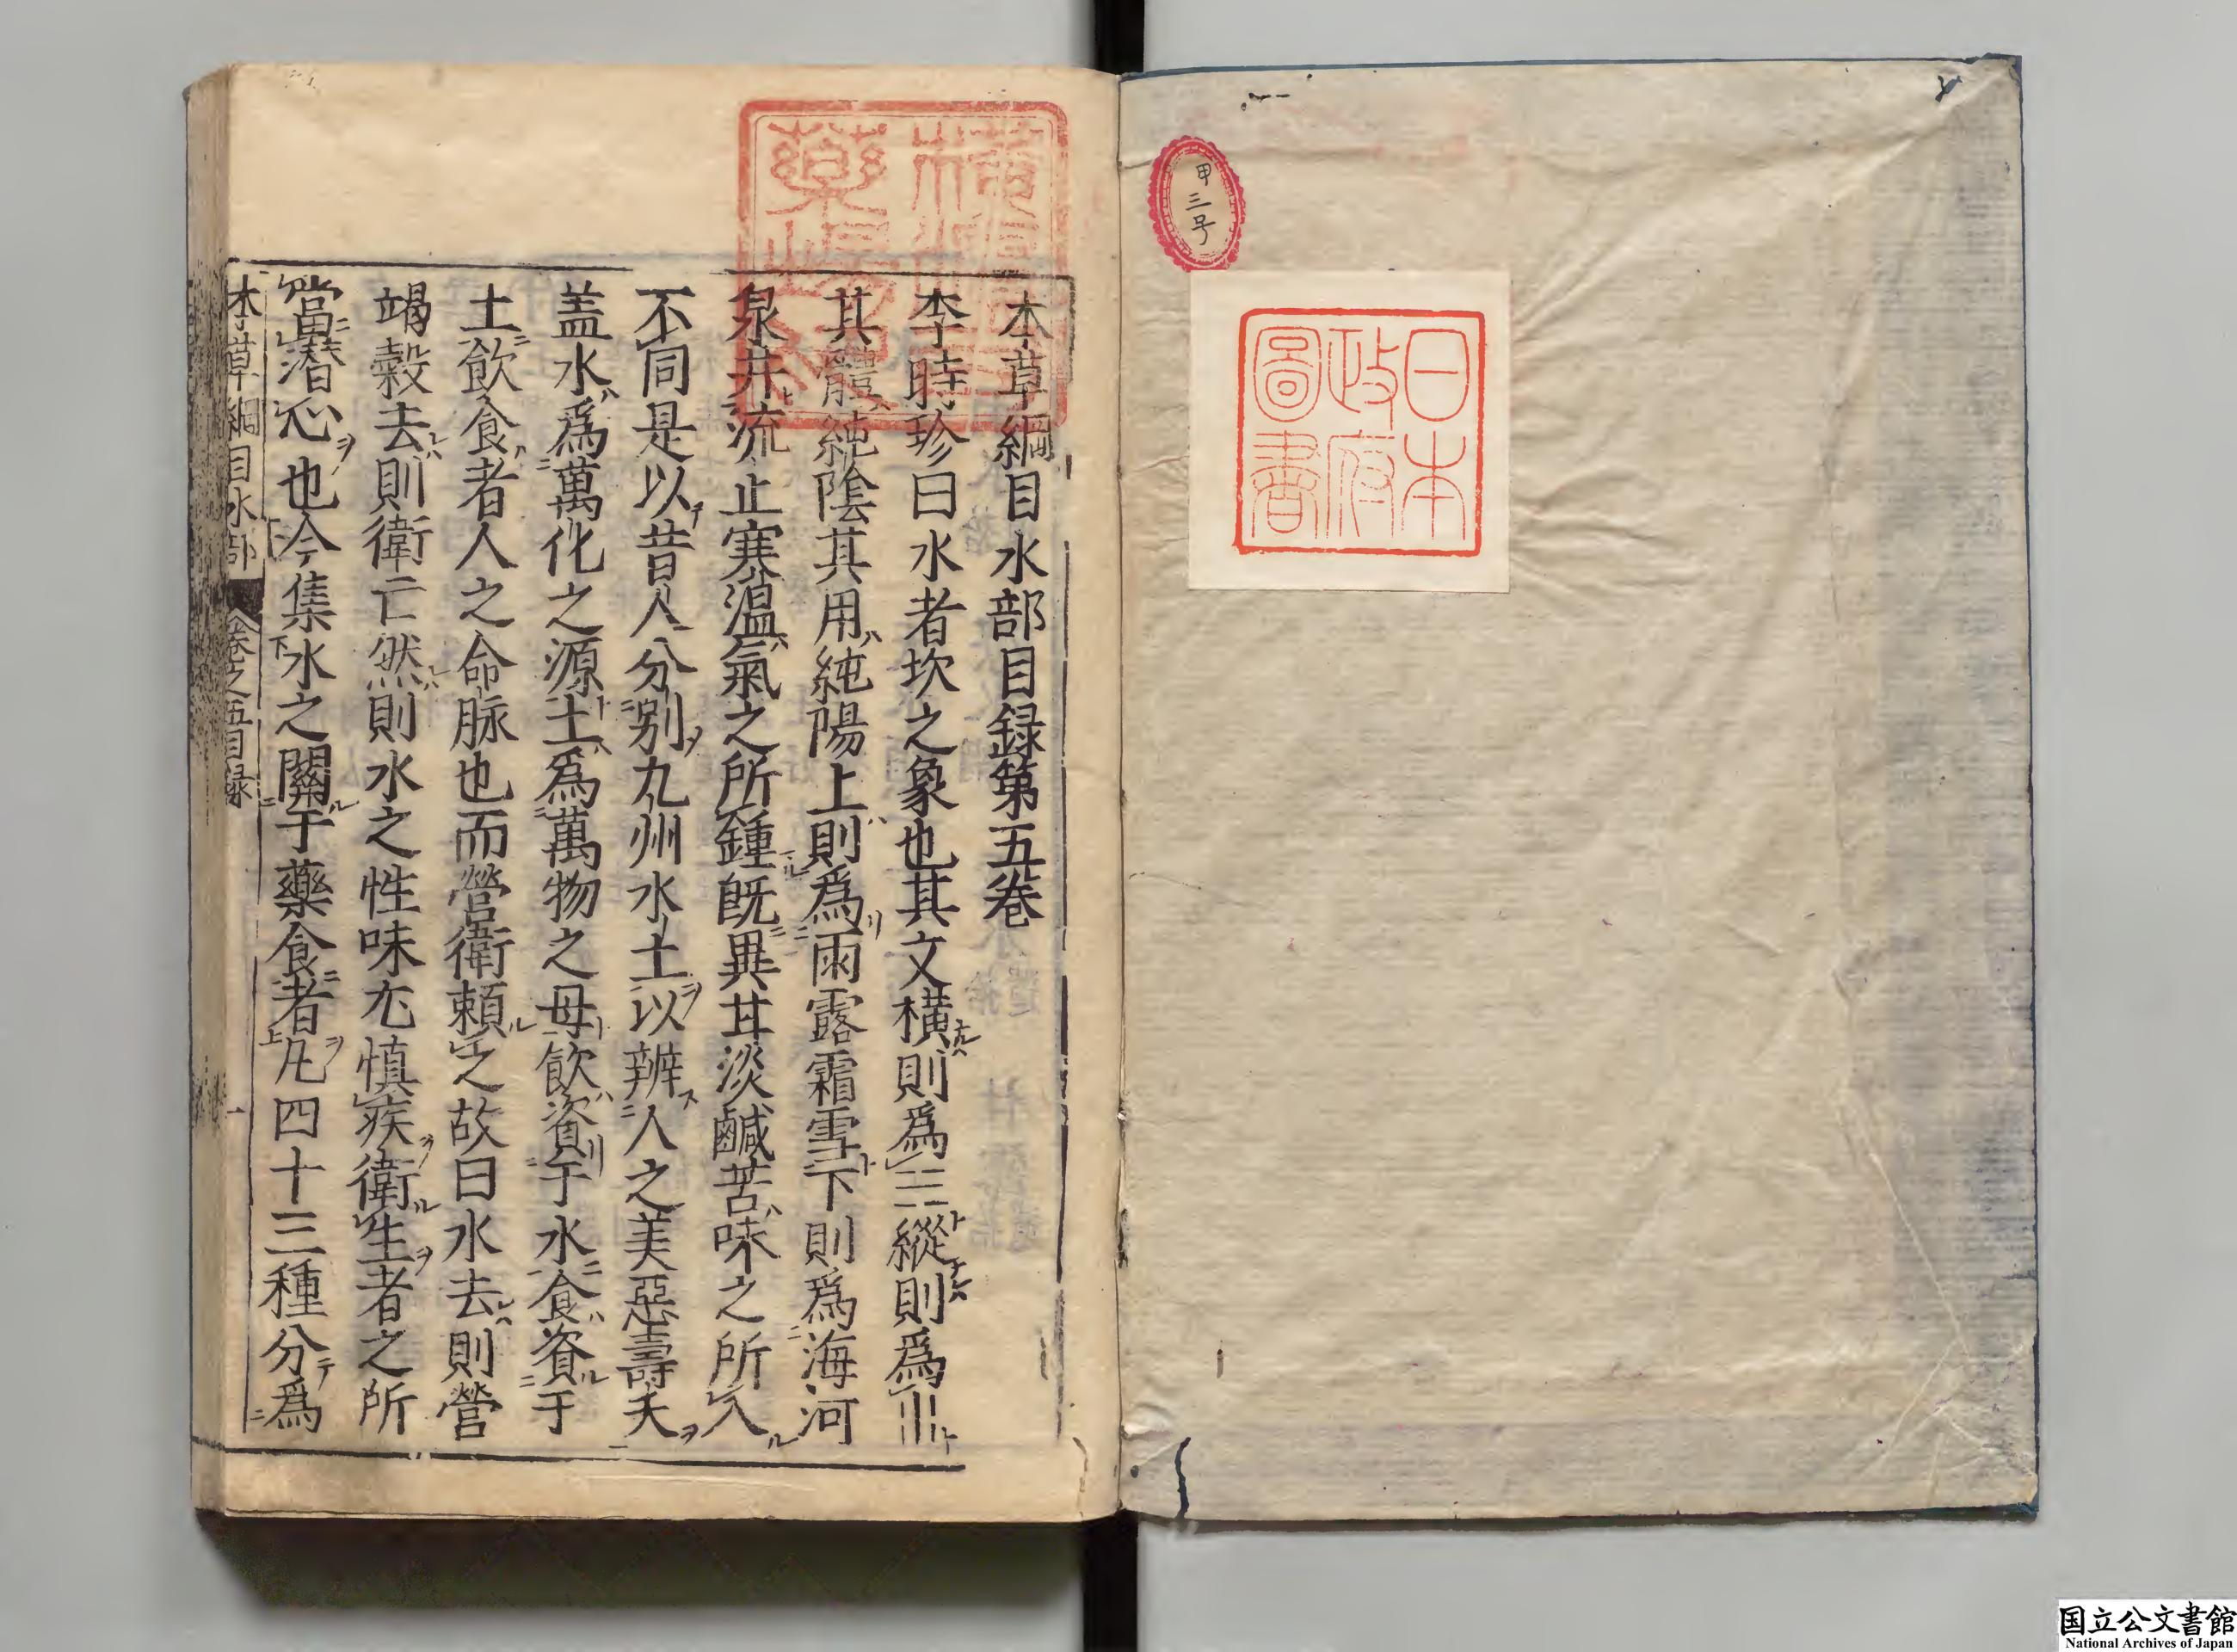 甲三号
日本
政府
圖書
本草綱目水部目録第五卷
李時珍曰水者坎之象也其文横則爲☵縱則爲〣
其體純陰其用純陽上則爲雨露霜雪下則爲海河
泉井流止寒溫氣之所鍾旣異甘淡鹹苦味之所入
不同是以昔人分别九州水土以辨人之美惡壽夭
盖水爲萬化之源土爲萬物之母飮資于水食資于
土飮食者人之命脉也而營衛頼之故曰水去則營
竭穀去則衛亡然則水之性味尤慎疾衛生者之所
當潜心也今集水之關于藥食者凡四十三種分爲
本草綱目水部 卷之五目録 一
国立公文書館
National Archives of Japan